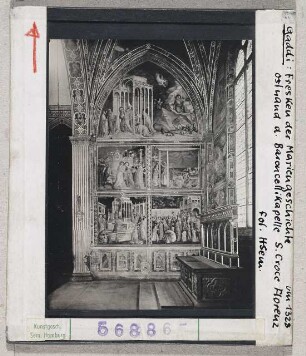 Gaddi: Fresken der Mariengeschichte um 1328
Ostwand d. Baroncellikapelle S. Croce Florenz
fot. Hsem.
Kunstgesch.
Sem. Hamburg
568865